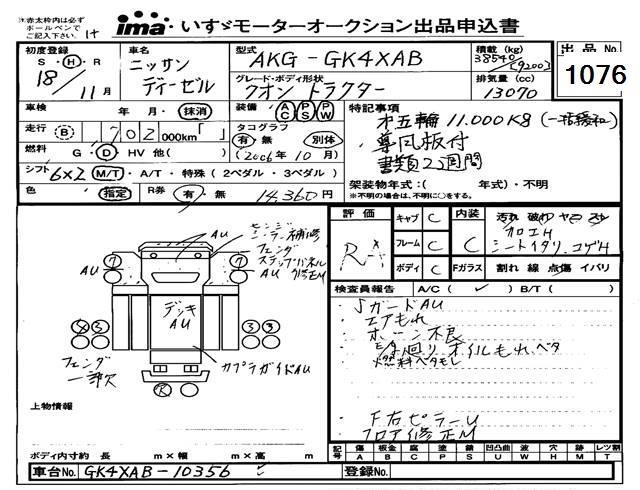 ※赤太枠内は必ず
ボールペンで
ご記入下さい
ima いすゞモーターオークション出品申込書
初度登録
S・H・R
18/11月
車名
ニッサン
ディーゼル
型式
AKG-GK4XAB
グレード・ボディ形状
クオン トラクター
積載(kg)
38540
(9200)
排気量(cc)
13070
出品No.
1076
車検 年・月・抹消
装備 AC PS PW
走行 B 702 000km「 」
タコグラフ
有・無 別体
(2006年10月)
燃料 G・D・HV 他( )
シフト 6x2 M/T・A/T・特殊(2ペダル・3ペダル)
色 指定 R券 有・無 14,360円
特記事項
・第五輪 11.000K8 (一括緩和)
・導風板付
書類2週間
架装物年式:( 年式)・不明
※不明の場合は、不明に○をする。
評価
R
キャブ C
フレーム C
ボディ C
内装 C
Fガラス
汚れ 破れ ヤニ スレ
加工H
シートイタリ、コゲH
割れ 線 点傷 イバリ
検査員報告 A/C( ✓ ) B/T( )
・Sガードau
・エアもれ
・ホーン不良
・E/g廻りオイルもれ、ベタ
燃料ベタモレ
・F右ピラーU
・フロア修正M
AU
AU
フェンダ
ステップパネル
AU 修正M
デッキ
AU
カプラガイドAU
フェンダ
一部欠
7
7
3
3
R
上物情報
ボディ内寸約 長 m×幅 m×高 m
記号 傷A 板金B 腐C 塗P 錆S 凹凸曲U 波W 穴H 跡M レンズ割T
車台No. GK4XAB-10356
登録No.